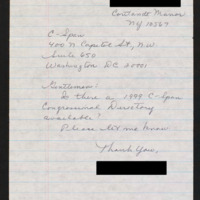 Cortlandt Manor
NY 10567
C-Span
400 N. Capitol St, N.W.
Suite 650
Washington DC 20001
Gentlemen:
Is there a 1999 C-Span
Congressional Directory
available?
Please let me know
Thank You,